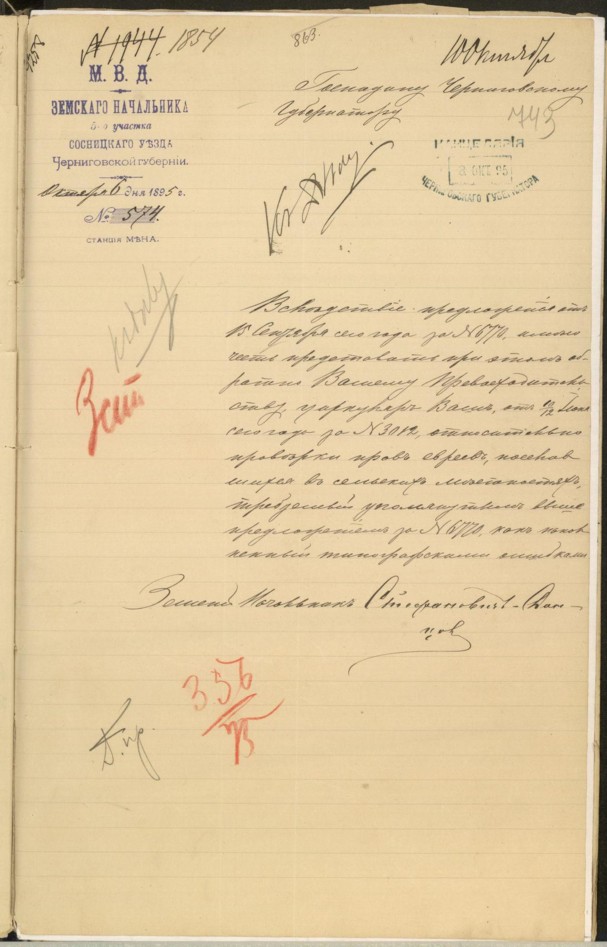 4258
N 1944. 1854
863.
10 Октября
М. В. Д.
ЗЕМСКАГО НАЧАЛЬНИКА
5-го участка
СОСНИЦКАГО УѢЗДА
Черниговской губерніи.
Октября 6 дня 1895 г.
№ 574.
СТАНЦІЯ МѢНА.
Господину Черниговскому
Губернатору
743
КАНЦЕЛЯРІЯ
8 ОКТ. 95
ЧЕРНИГОВСКАГО ГУБЕРНАТОРА
Къ дѣлу.
Къ дѣлу
Вслѣдствіе предложенія отъ
15 Сентября сего года за N 6770, имѣю
честь представить при этомъ об
ратно Вашему Превосходитель
ству, циркуляръ Вашъ, отъ 10/12 Іюня
сего года за N 3012, относительно
провѣрки правъ евреевъ, поселив
шихся въ сельскихъ мѣстностяхъ,
требуемый упомянутымъ выше
предложеніемъ за N 6770, какъ испол
ненный типографскими ошибками
Земскій Начальникъ Стефановичъ-Дон
цов
356
К. пр.